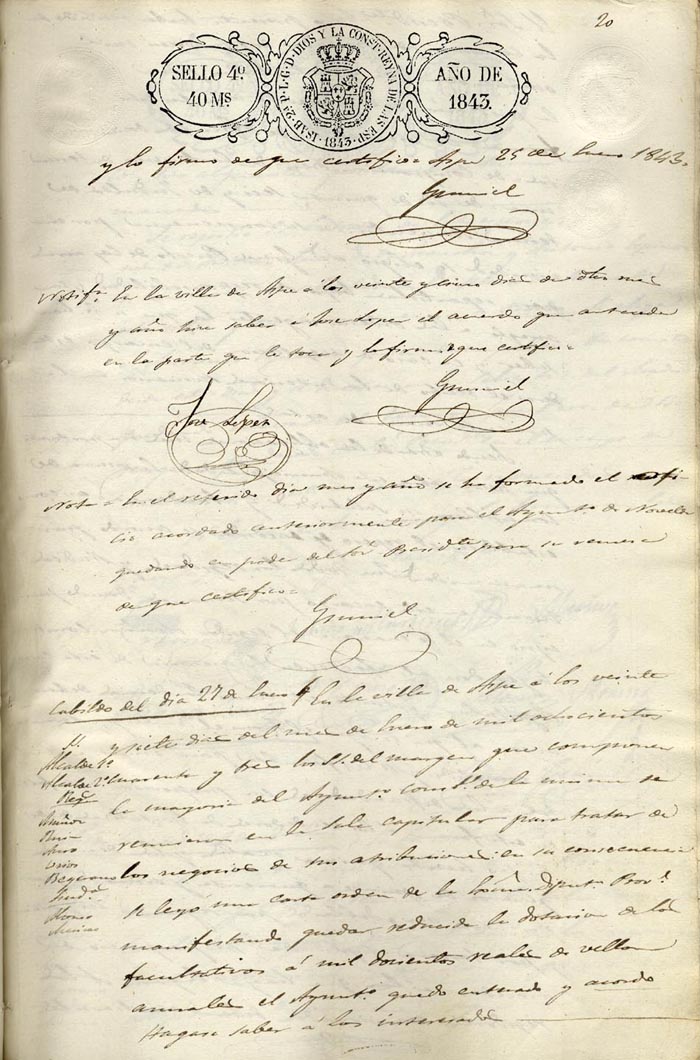 20
SELLO 4º
40 Ms
ISAB. 2ª P. L. G. D. DIOS Y LA CONST. REYNA DE LAS ESP.
1843.
AÑO DE
1843.
y lo firmo de que certifico = Aspe 25 de Enero 1843.
Notifn. En la villa de Aspe á los veinte y cinco dias de dho mes
y año hice saber á Jose Lopez el acuerdo que antecede
en la parte que le toca y lo firma de que certifico =
Jose Lopez
Nota = En el referido dia mes y año se ha formado el
cio acordado anteriormente para el Ayunto. de Novelda
quedando en poder del Sor. Presidte. para su remesa
de que certifico =
Cabildo del dia 27 de Enero En la villa de Aspe á los veinte
y siete dias del mes de Enero de mil ochocientos
Alcalde 1º
Alcalde 2º cuarenta y tres los Ss. del margen que componen
la mayoria del Ayunto. Constl. de la misma se
reunieron en la Sala capitular para tratar de
los negocios de sus atribuciones en su consecuencia
Se leyo una carta orden de la Excma. Diputn. Provl.
Alonso
manifestando quedar reducida la dotacion de los
facultativos á mil docientos reales de vellon
anuales el Ayunto. quedo enterado y acordo
Hagase saber á los interesados